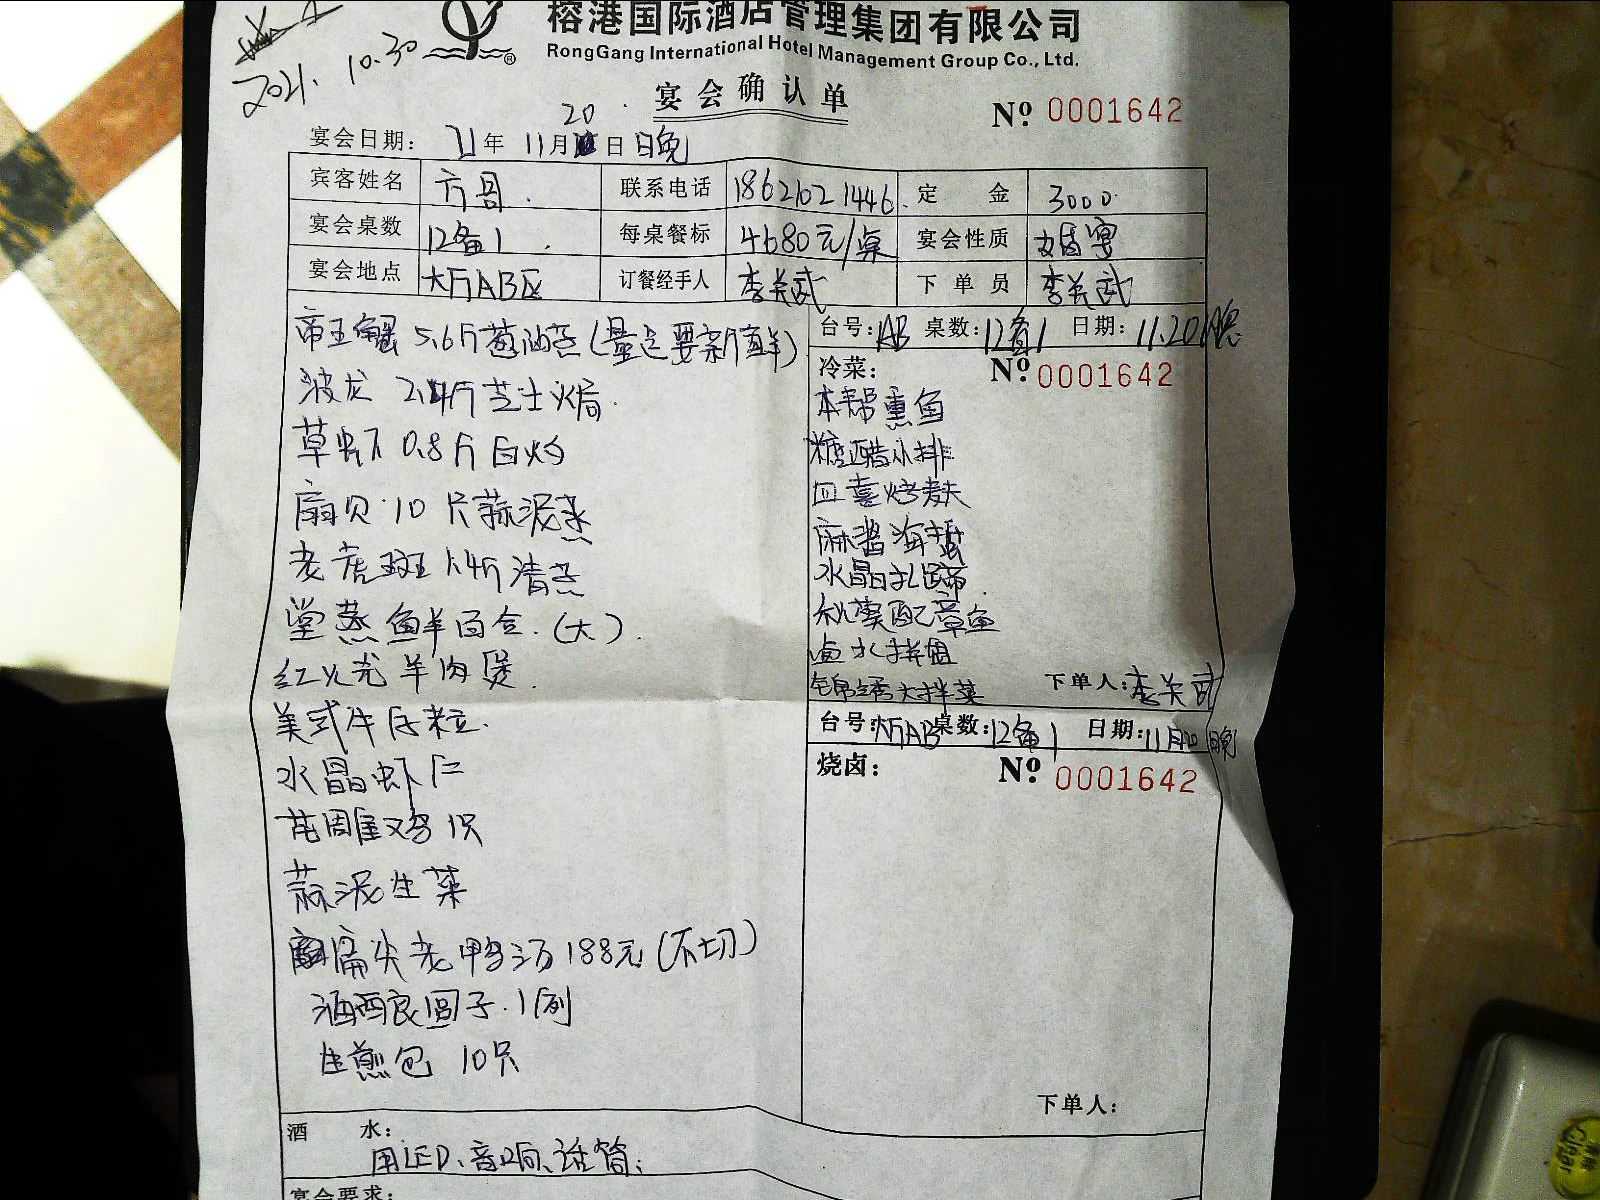 2021. 10.30
榕港国际酒店管理集团有限公司
RongGang International Hotel Management Group Co., Ltd.
宴会确认单
№ 0001642
宴会日期: 21年 11月20日 晚
宾客姓名 方哥. 联系电话 18621021446. 定金 3000
宴会桌数 12备1. 每桌餐标 4680元/桌 宴会性质 婚宴
宴会地点 大厅AB区 订餐经手人 李关武 下单员 李关武
帝王蟹 5.6斤葱油蒸(量足要新鲜)
波龙 2.4斤芝士焗.
草虾 0.8斤白灼
扇贝 10片蒜泥蒸
老虎斑 1.4斤清蒸
堂蒸鲜百合.(大).
红火羊肉煲.
美式牛仔粒.
水晶虾仁
花雕鸡1只
蒜泥生菜
扁尖老鸭汤188元(不切)
酒酿圆子.1例
生煎包 10只
台号:AB 桌数:12备1 日期:11.20晚
冷菜: № 0001642
本帮熏鱼
糖醋小排
四喜烤麸
麻酱海蜇
水晶扎蹄
秋葵配章鱼
卤水拼盘
锦绣大拌菜
下单人:李关武
台号:大厅AB 桌数:12备1 日期:11月20日晚
烧卤: № 0001642
下单人:
酒水:
用LED、音响、话筒;
宴会要求: